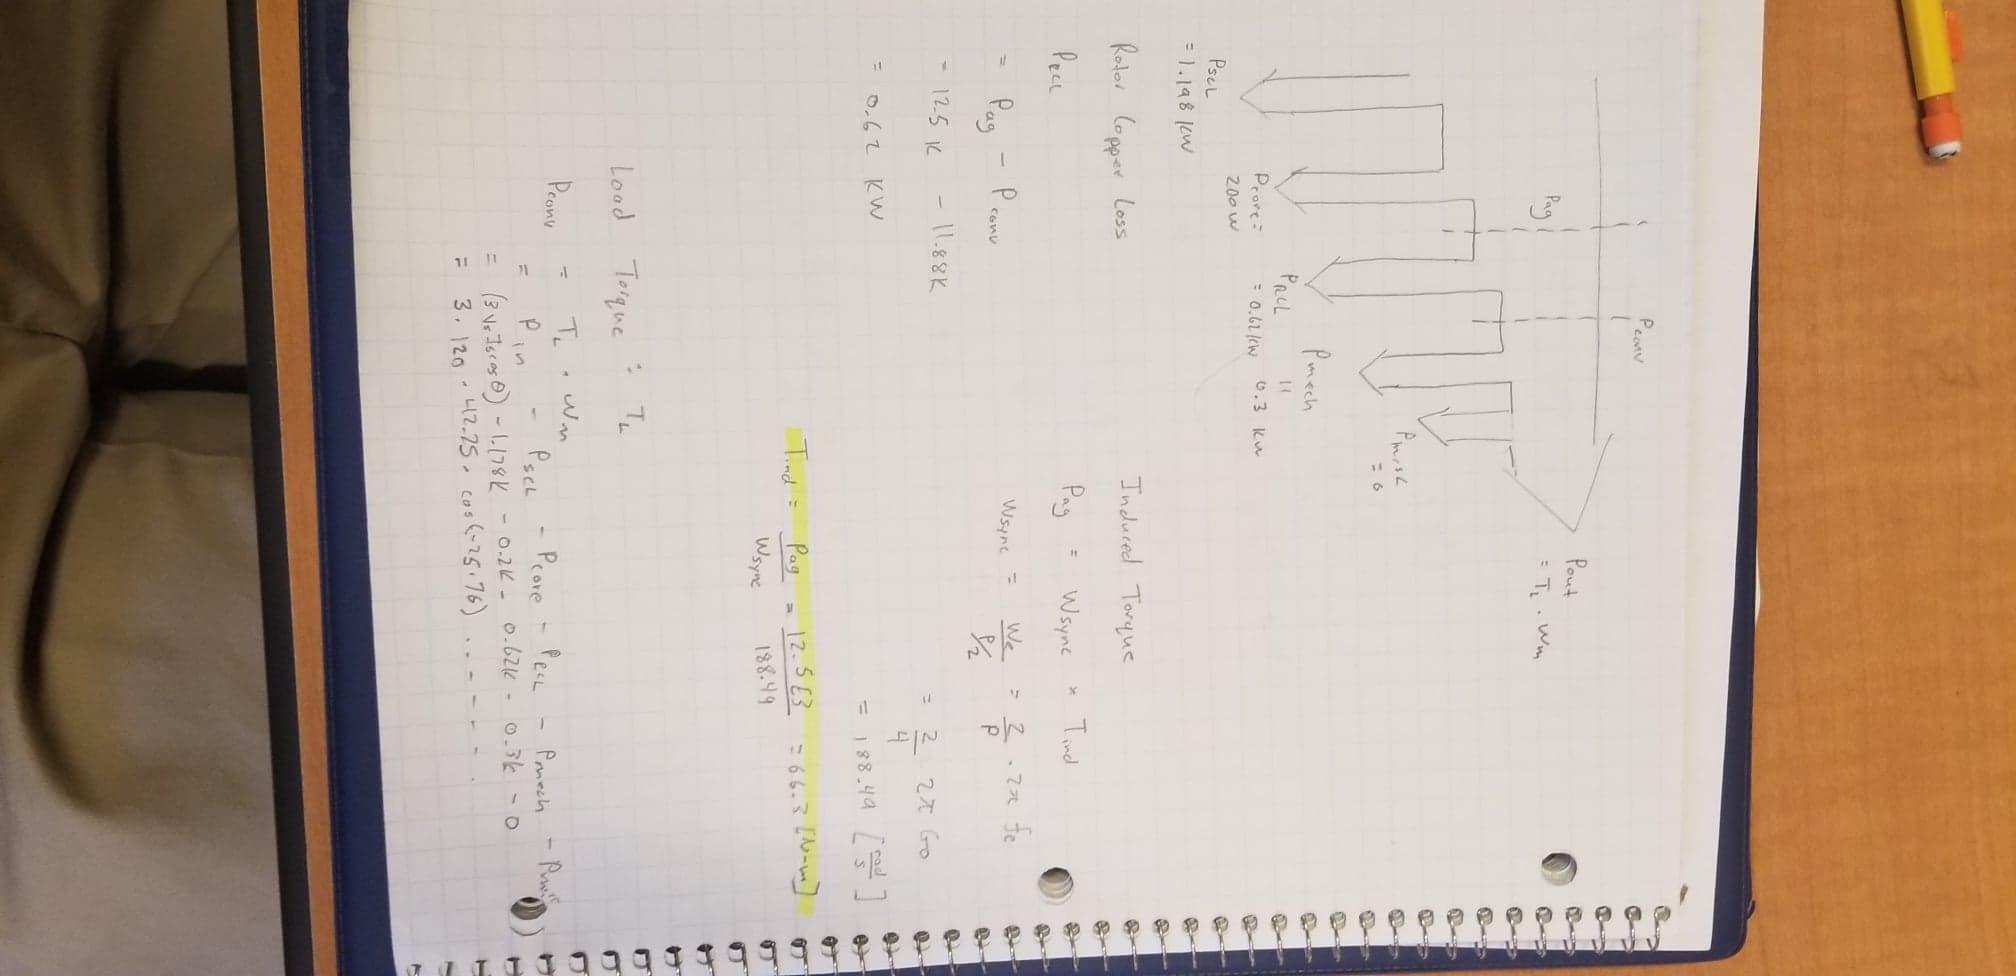 Pconv
Pag
Pout
= T_L . Wm
Pmisc
= 0
Pmech
||
0.3 KW
PRCL
= 0.62 KW
Pcore =
200 W
PSCL
= 1.198 KW
Rotor Copper Loss
PRCL
= Pag - Pconv
= 12.5 K - 11.88K
= 0.62 KW
Induced Torque
Pag = Wsync × Tind
Wsync = We / P/2 = 2/P . 2π fe
= 2/4 2π 60
= 188.49 [rad/s]
Tind = Pag / Wsync = 12.5E3 / 188.49 = 66.3 [N-m]
Load Torque : T_L
Pconv = T_L . Wm
= Pin - PSCL - Pcore - PRCL - Pmech -
= (3 Vs Is cos θ) - 1.178K - 0.2K - 0.62K - 0.3K - 0
= 3 . 120 . 42.25 . cos(-25.76) . . - - - - .